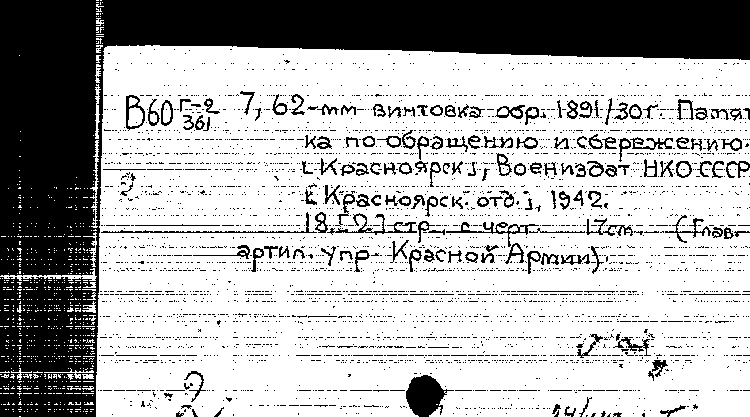 В60 Г-2/361 7,62-мм винтовка обр. 1891/30г. Памят
ка по обращению и сбережению.
[Красноярск], Воениздат НКО СССР
[Красноярск. отд.], 1942.
18.[2.] стр., с черт. 17см. (Глав.
артил. упр. Красной Армии).